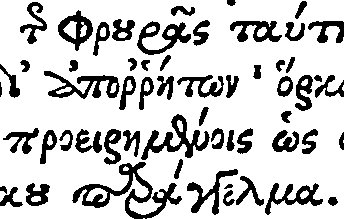 τ̃ Φρουρᾶς ταύτη
δι' ἀπορρήτων · ὅρκ
προειρημένοις ὡς
ου παράγγελμα.